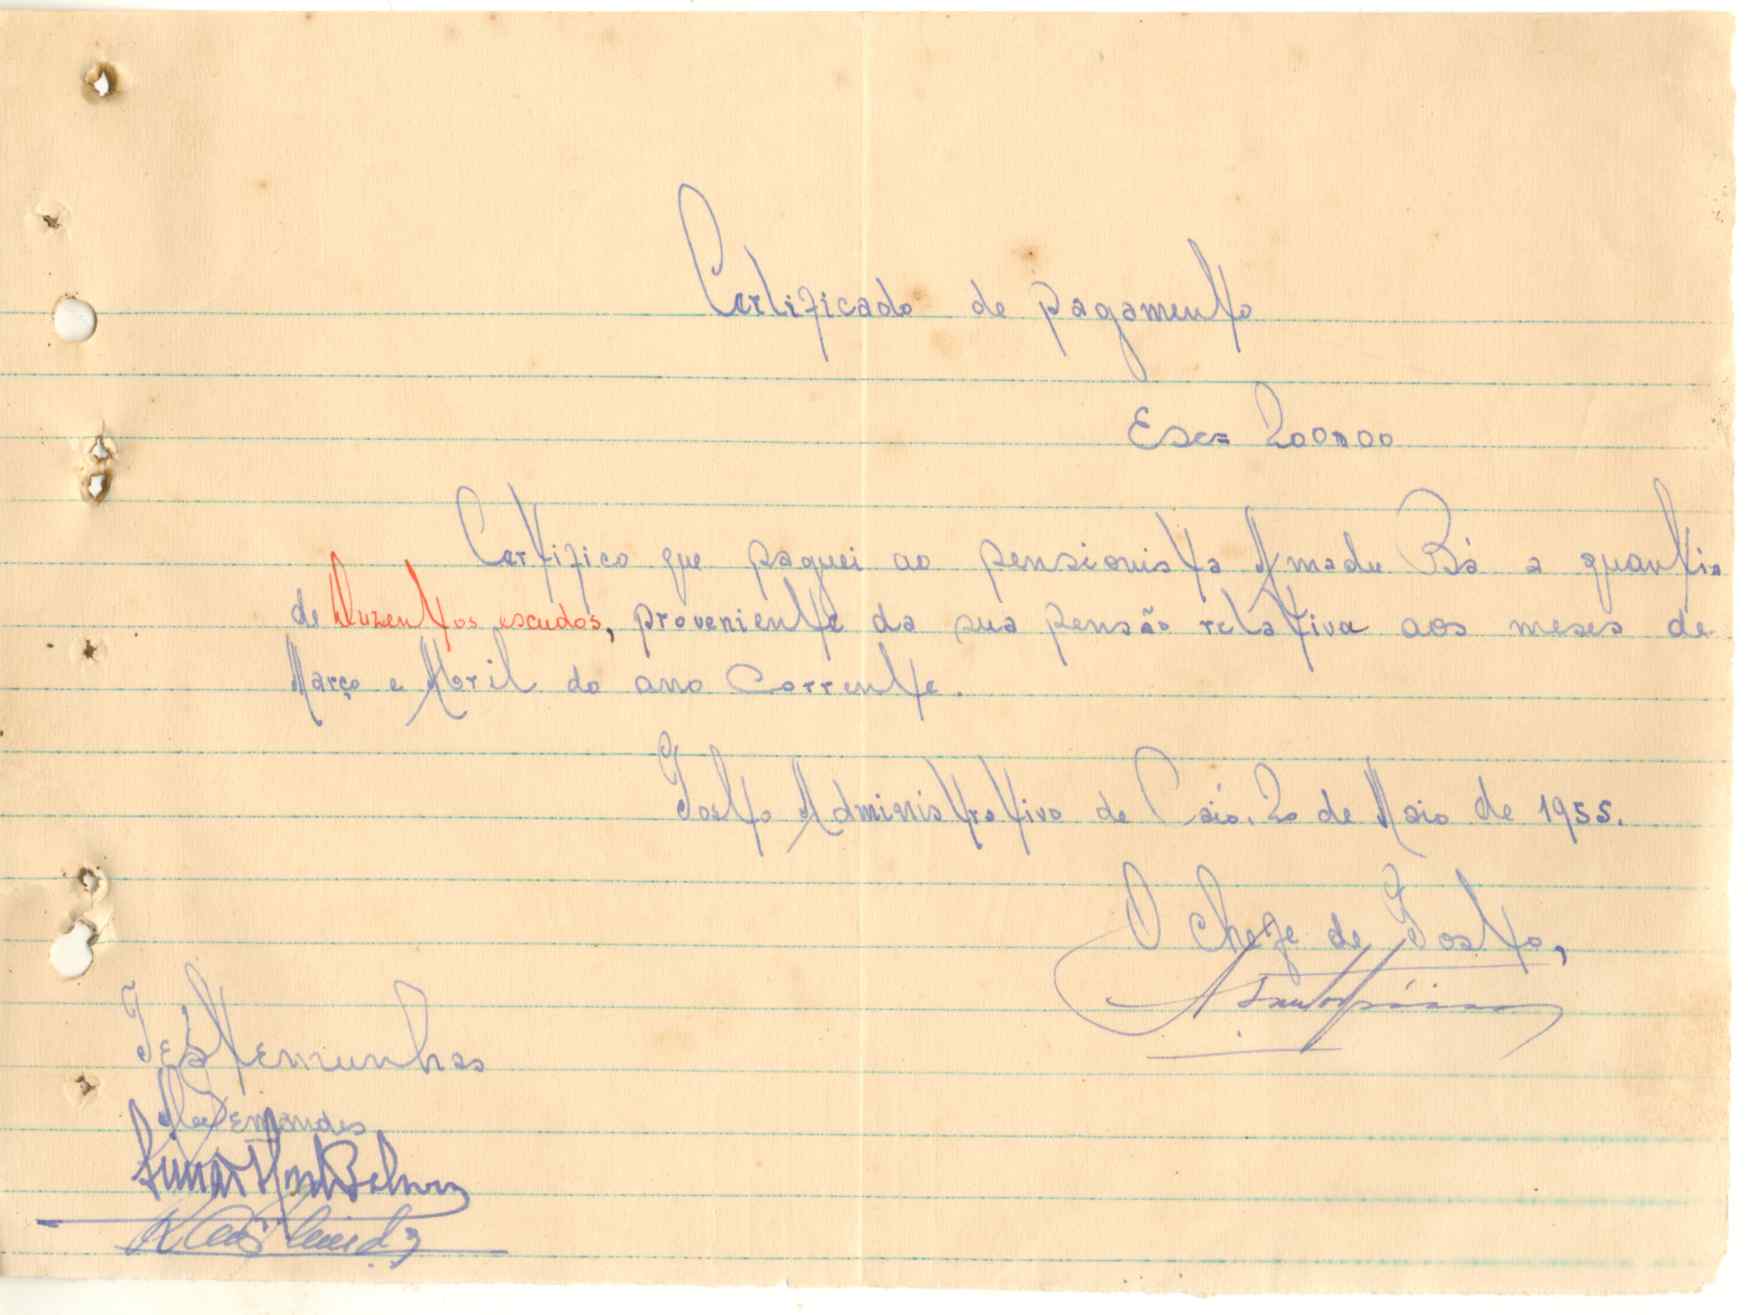 Certificado de pagamento
Esc= 200$00
Certifico que paguei ao pensionista Amadu Bá a quantia
de Duzentos escudos, proveniente da sua pensão relativa aos meses de
Março e Abril do ano corrente.
Posto Administrativo de Caió, 20 de Maio de 1955.
O Chefe de Posto,
Testemunhas